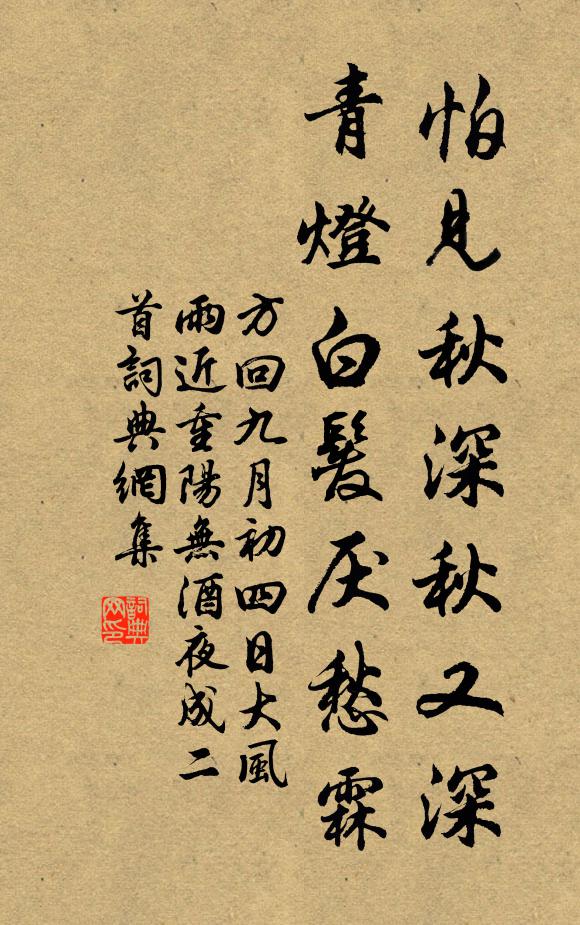 怕見秋深秋又深
青燈白髮厌愁霖
方回九月初四日大風
雨近重陽無酒夜成二
首詞典網集
詞典
网印